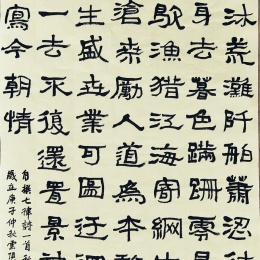 沐荒灘阡舶蕭忍
身去暮色蹣跚零星
漁獵江海寄網生
滄桑勵人道為本
生盛世業可圖迂
一去不復還置景
寫今朝情
自撰七律詩一首
歲在庚子仲秋雲